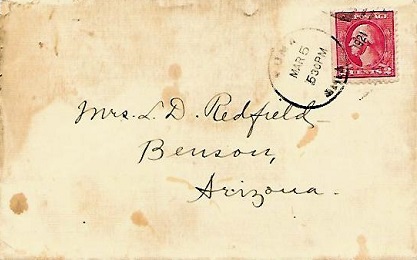 MAR 5
5 30PM
1921
POSTAGE
2 CENTS 2
Mrs. L. D. Redfield
Benson,
Arizona.